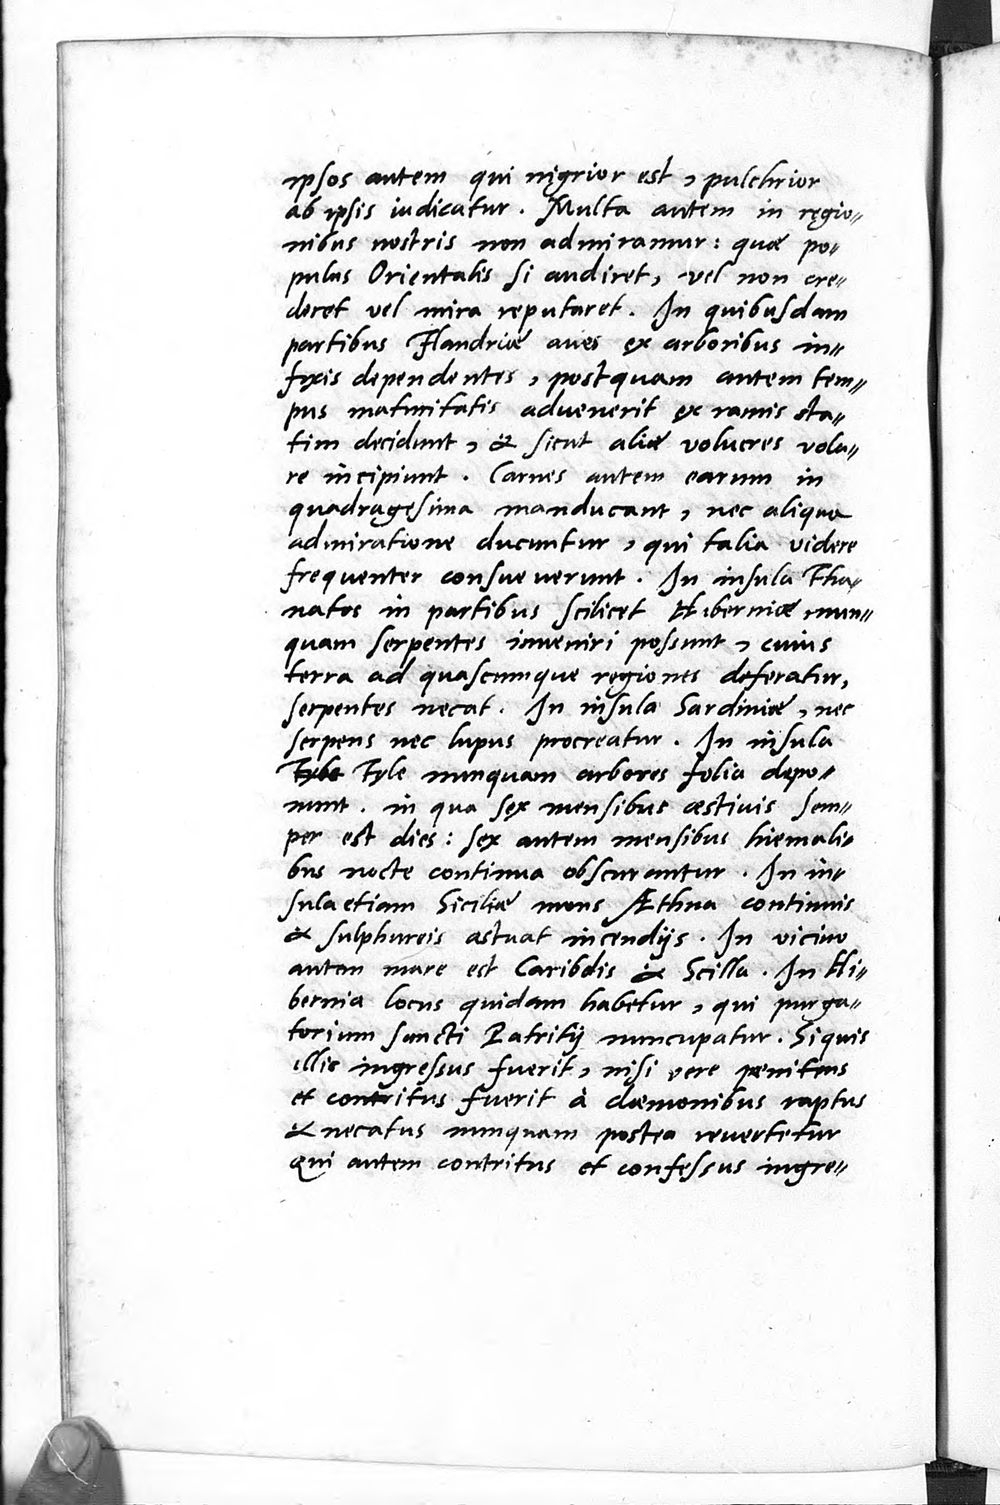 ipsos autem qui nigrior est, pulchrior
ab ipsis iudicatur. Multa autem in regio„
nibus nostris non admiramur: quæ po„
pulus Orientalis si audiret, vel non cre„
deret vel mira reputaret. In quibusdam
partibus Flandriæ aues ex arboribus in„
fixis dependentes, postquam autem tem„
pus maturitatis aduenerit ex ramis sta„
tim decidunt, & sicut aliæ volucres vola„
re incipiunt. Carnes autem earum in
quadragesima manducant, nec aliqua
admiratione ducuntur, qui talia videre
frequenter consueuerunt. In insula Tha„
natos in partibus scilicet Hiberniæ nun„
quam serpentes inueniri possunt, cuius
terra ad quascumque regiones deferatur,
serpentes necat. In insula Sardiniæ, nec
serpens nec lupus procreatur. In insula
Tyle nunquam arbores folia depo„
nunt. in qua sex mensibus æstiuis sem„
per est dies: sex autem mensibus hiemali„
bus nocte continua obscurantur. In in„
sula etiam Siciliæ mons Æthna continuis
& sulphureis æstuat incendijs. In vicino
autem mare est Caribdis & Scilla. In Hi„
bernia locus quidam habetur, qui purga„
torium sancti Patritij nuncupatur. Siquis
illic ingressus fuerit, nisi vere pænitens
et contritus fuerit à dæmonibus raptus
& necatus nunquam postea reuertetur
Qui autem contritus et confessus ingre„